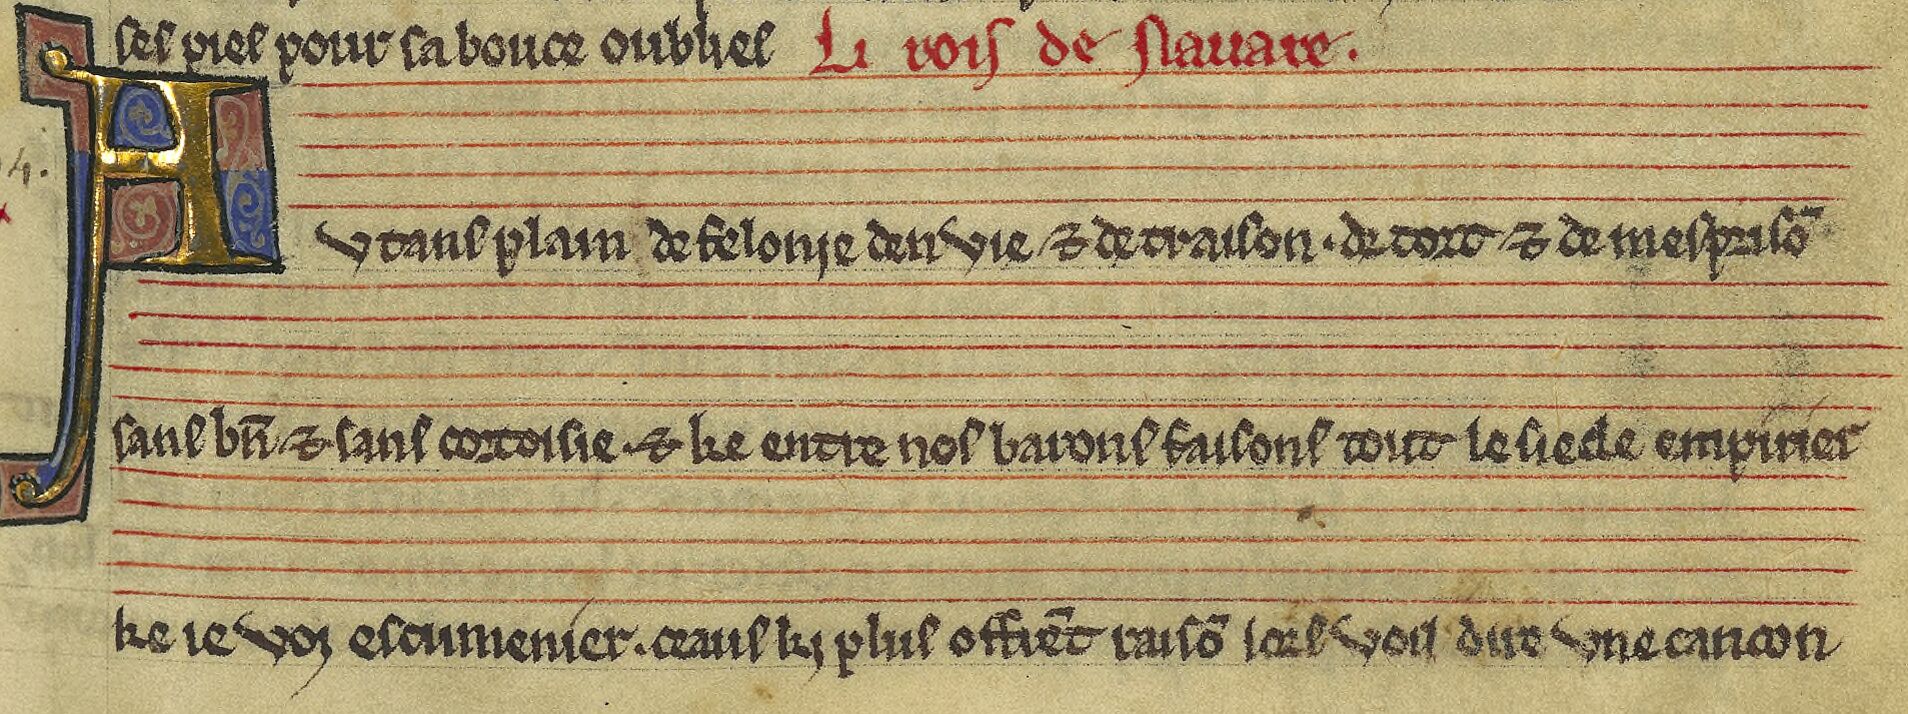 ses piel pour sa bouce oubliel Li rois de Nauare.
4.
A
v tans plain de felonie denvie & de traison . de tort & de mesprisō
sans bn̄ & sans cortoisie . & ke entre nos barons faisons tout le siecle empirier
ke ie voi escumenier . ceaus ki plus offrēt raisō lors voil dire vne cancon